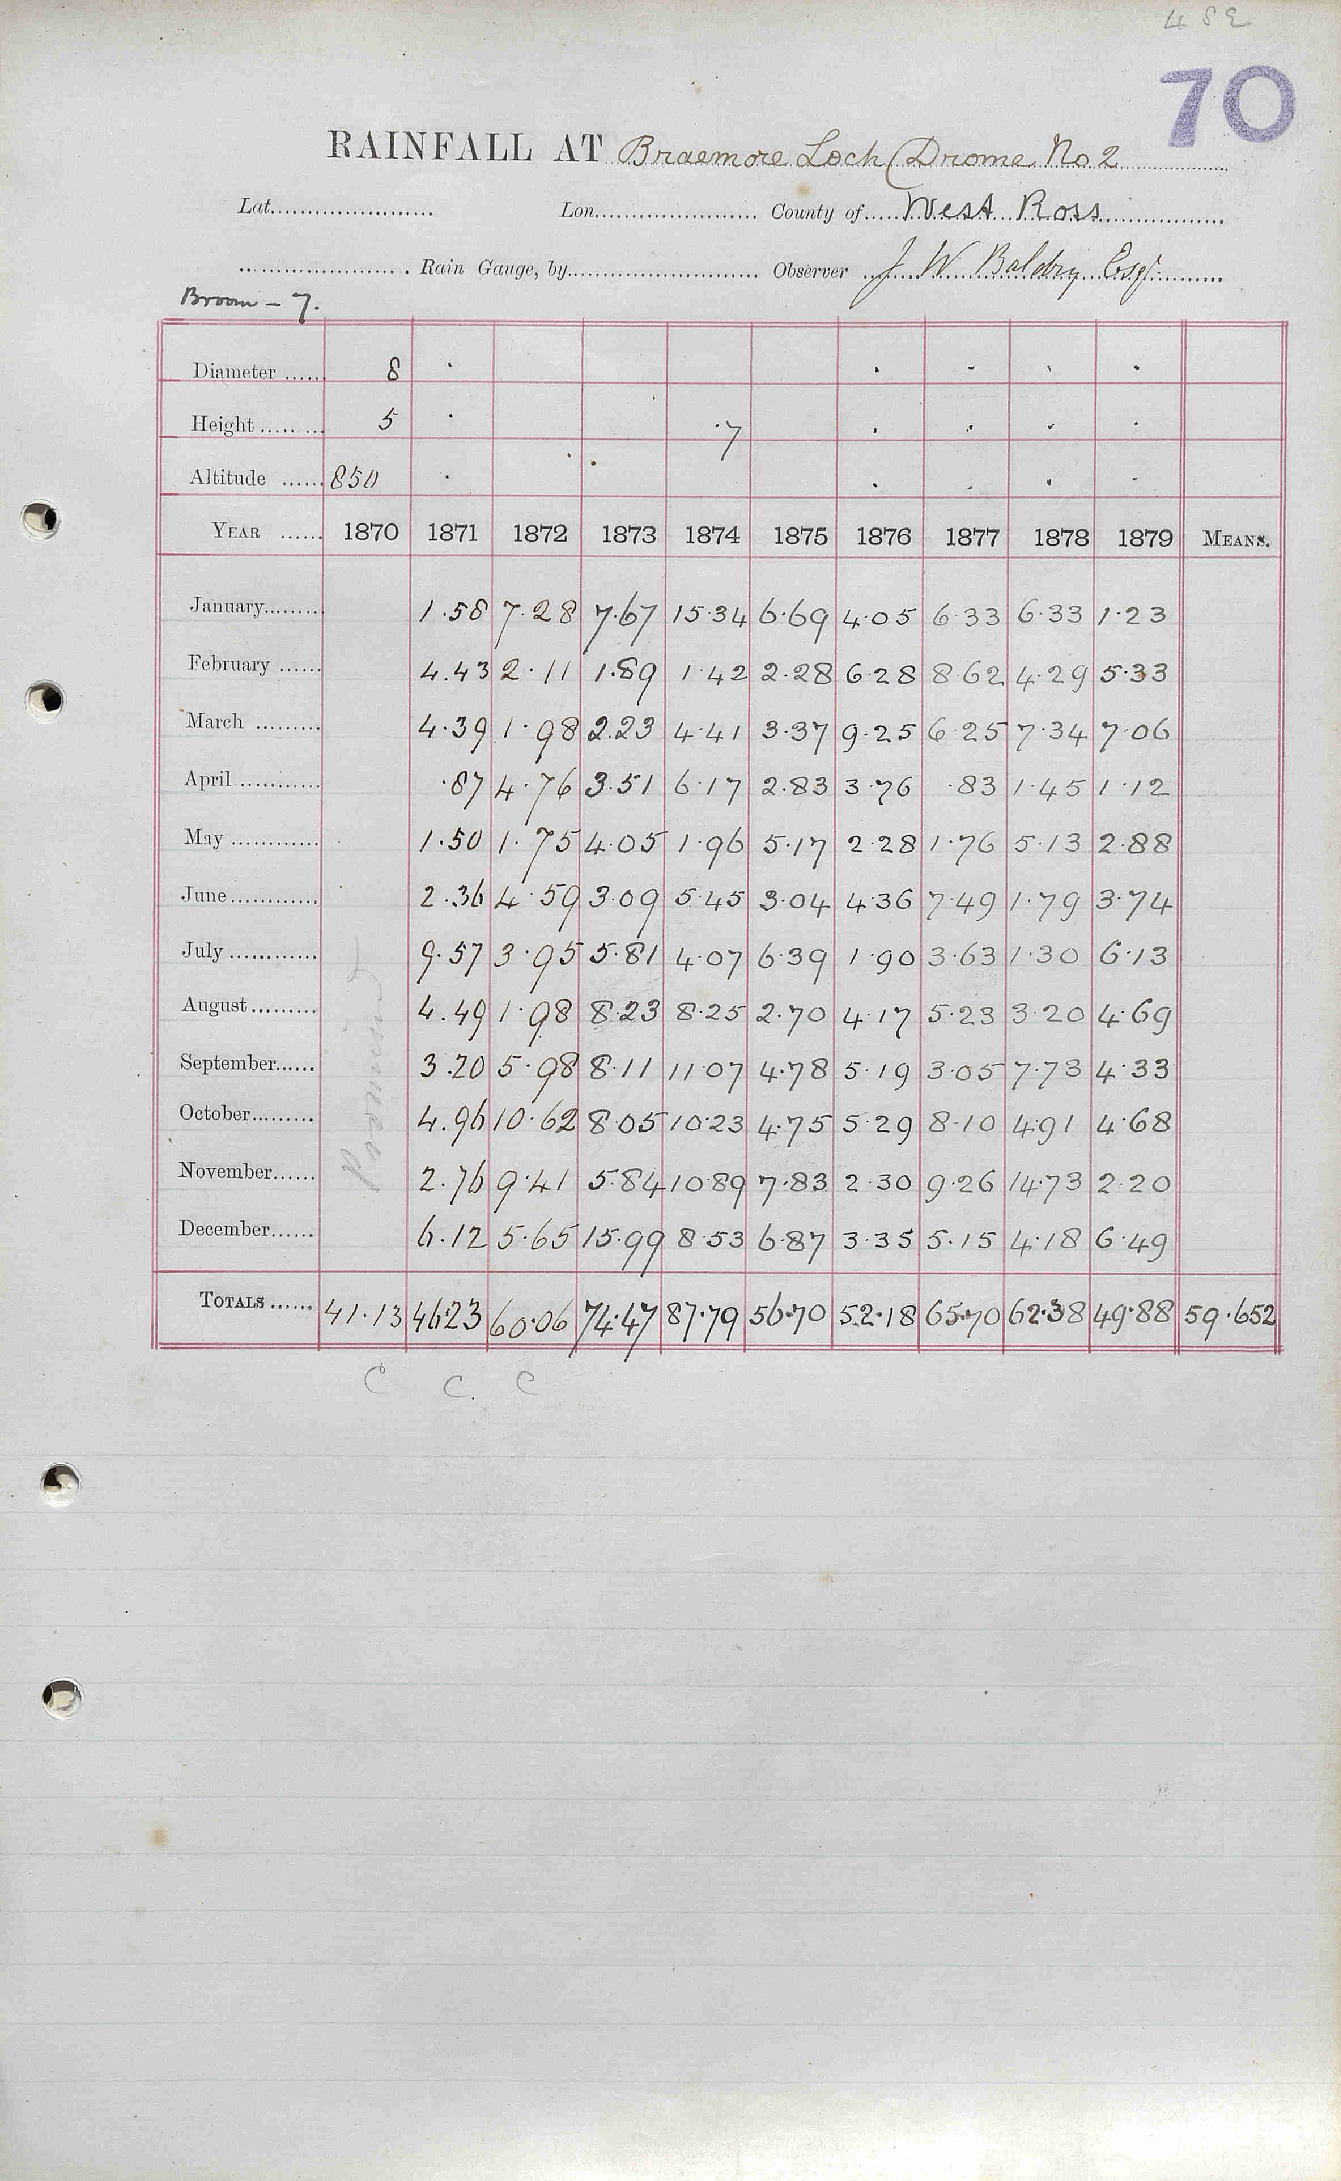 4 S E
70
RAINFALL AT Braemore Loch Drome No 2
Lat. Lon. County of West Ross
Rain Gauge, by Observer J W Baldry Esqr
Broom - 7.
Diameter 8 · · · · ·
Height 5 · ·7 · · · ·
Altitude 850 · · · · · · ·
YEAR 1870 1871 1872 1873 1874 1875 1876 1877 1878 1879 MEANS.
January 1.58 7.28 7.67 15.34 6.69 4.05 6.33 6.33 1.23
February 4.43 2.11 1.89 1.42 2.28 6.28 8.62 4.29 5.33
March 4.39 1.98 2.23 4.41 3.37 9.25 6.25 7.34 7.06
April .87 4.76 3.51 6.17 2.83 3.76 .83 1.45 1.12
May 1.50 1.75 4.05 1.96 5.17 2.28 1.76 5.13 2.88
June 2.36 4.59 3.09 5.45 3.04 4.36 7.49 1.79 3.74
July 9.57 3.95 5.81 4.07 6.39 1.90 3.63 1.30 6.13
August 4.49 1.98 8.23 8.25 2.70 4.17 5.23 3.20 4.69
September 3.20 5.98 8.11 11.07 4.78 5.19 3.05 7.73 4.33
October 4.96 10.62 8.05 10.23 4.75 5.29 8.10 4.91 4.68
November 2.76 9.41 5.84 10.89 7.83 2.30 9.26 14.73 2.20
December 6.12 5.65 15.99 8.53 6.87 3.35 5.15 4.18 6.49
TOTALS 41.13 46.23 60.06 74.47 87.79 56.70 52.18 65.70 62.38 49.88 59.652
C C. C